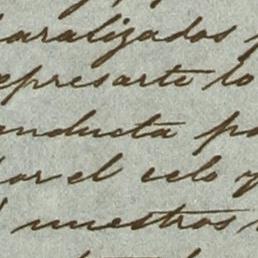 aralizados
epresarte lo
onducta po
por el celo y
nuestros